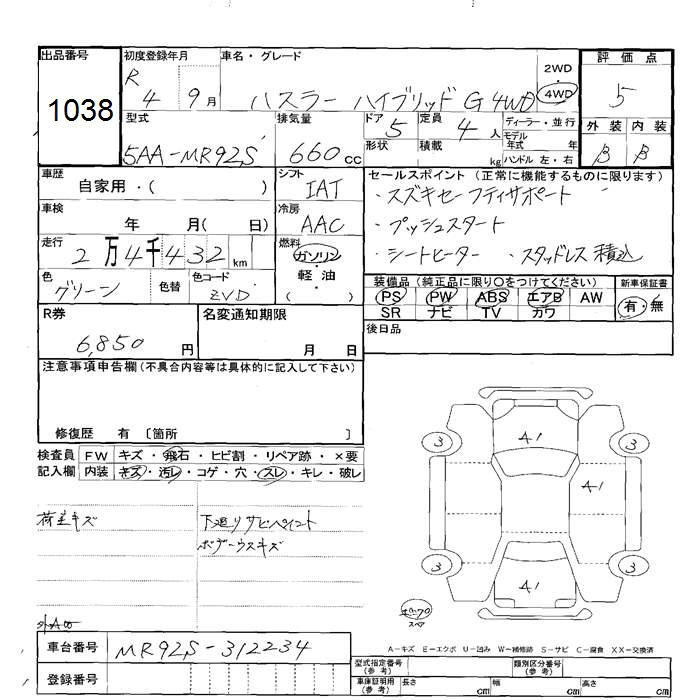 出品番号
1038
初度登録年月
R 4 9 月
車名・グレード
ハスラー ハイブリッド G 4WD
2WD
4WD
評価点
5
外装 内装
B B
型式
5AA-MR92S
排気量
660 cc
ドア 5
定員 4 人
形状
積載 kg
ディーラー・並行
モデル年式 年
ハンドル 左・右
車歴
自家用・( )
シフト
IAT
車検
年 月( 日)
冷房
AAC
走行
2万4千432 km
燃料
ガソリン
軽油
( )
色
グリーン
色替
色コード
ZVD
セールスポイント (正常に機能するものに限ります)
・スズキセーフティサポート
・プッシュスタート
・シートヒーター ・スタッドレス積込
装備品 (純正品に限り○をつけてください)
PS PW ABS エアB AW
SR ナビ TV カワ
新車保証書
有・無
後日品
R券
6,850 円
名変通知期限
月 日
注意事項申告欄 (不具合内容等は具体的に記入して下さい)
修復歴 有 〔箇所 〕
検査員記入欄
FW キズ・飛石・ヒビ割・リペア跡・×要
内装 キズ・汚レ・コゲ・穴・スレ・キレ・破レ
荷室キズ
下廻りサビペイント
ボデーウスキズ
3 3
A1
A1
3 3
A1
スペア
A-キズ E-エクボ U-凹み W-補修跡 S-サビ C-腐食 XX-交換済
車台番号
MR92S-312234
登録番号
型式指定番号(参考)
類別区分番号(参考)
車庫証明用(参考)
長さ cm
幅 cm
高さ cm